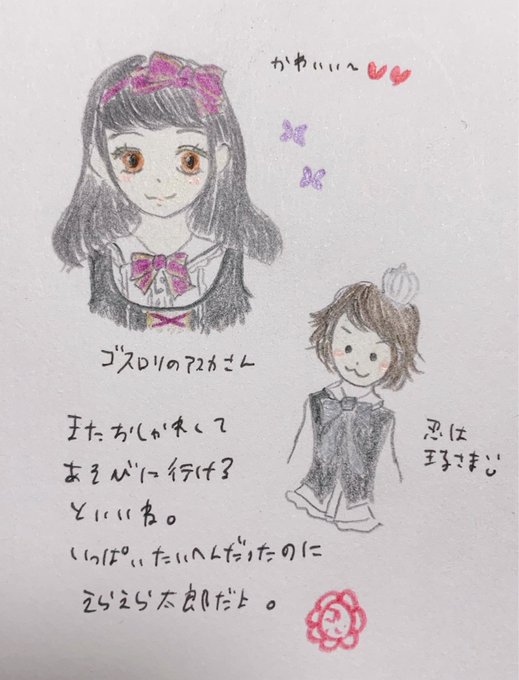 かわいい〜
ゴスロリのアスカさん
忍は
王子さま
またおしゃれして
あそびに行ける
といいね。
いっぱいたいへんだったのに
えらえら太郎だよ。